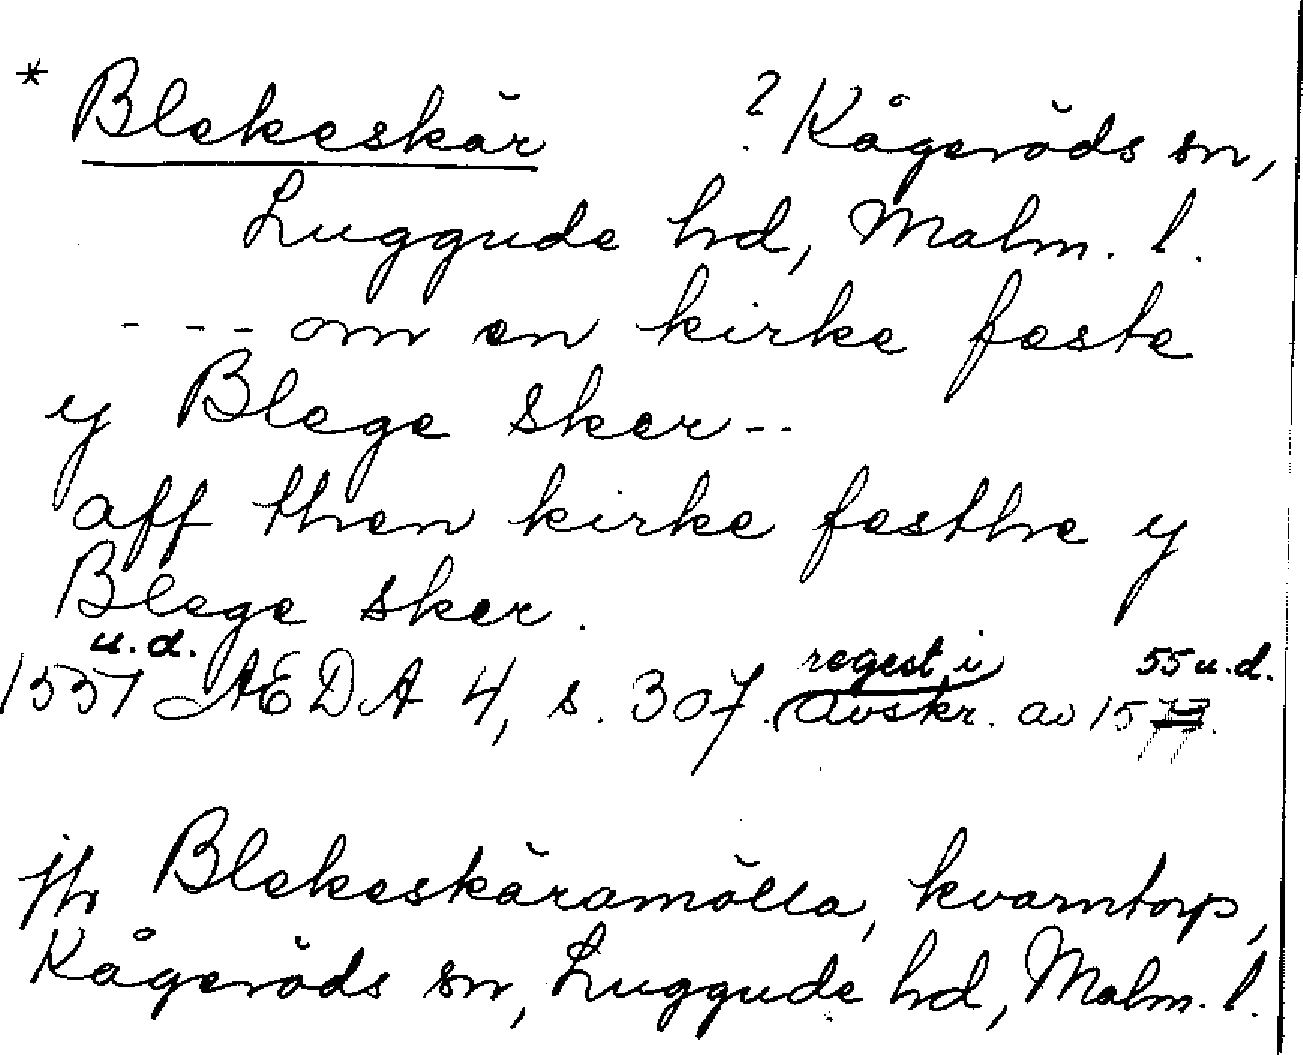 * Blekeskär ? Kågeröds sn,
Luggude hd, Malm. l.
- - - om en kirke feste
y Blege sker - -
aff then kirke festhe y
Blege sker.
u.d. regest i 55 u.d.
1557 ÆDA 4, s. 307. (avskr. av 15
jfr Blekeskäramölla, kvarntorp,
Kågeröds sn, Luggude hd, Malm. l.